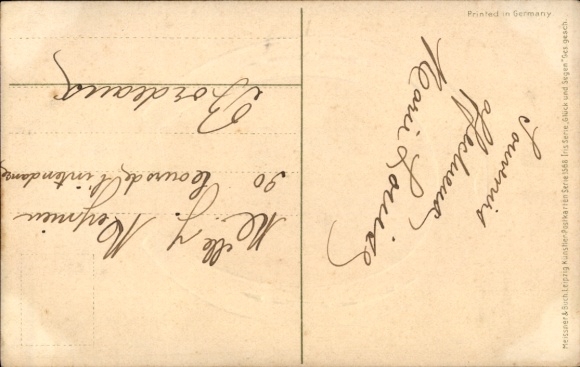 Souvenir
affectueux
Marie Louise
Melle J. Meymien
90 Cours de l'intendance
Bordeaux
Printed in Germany.
Meissner & Buch, Leipzig Künstler-Postkarten Serie 1568 Iris Serie „Glück und Segen" Ges. gesch.